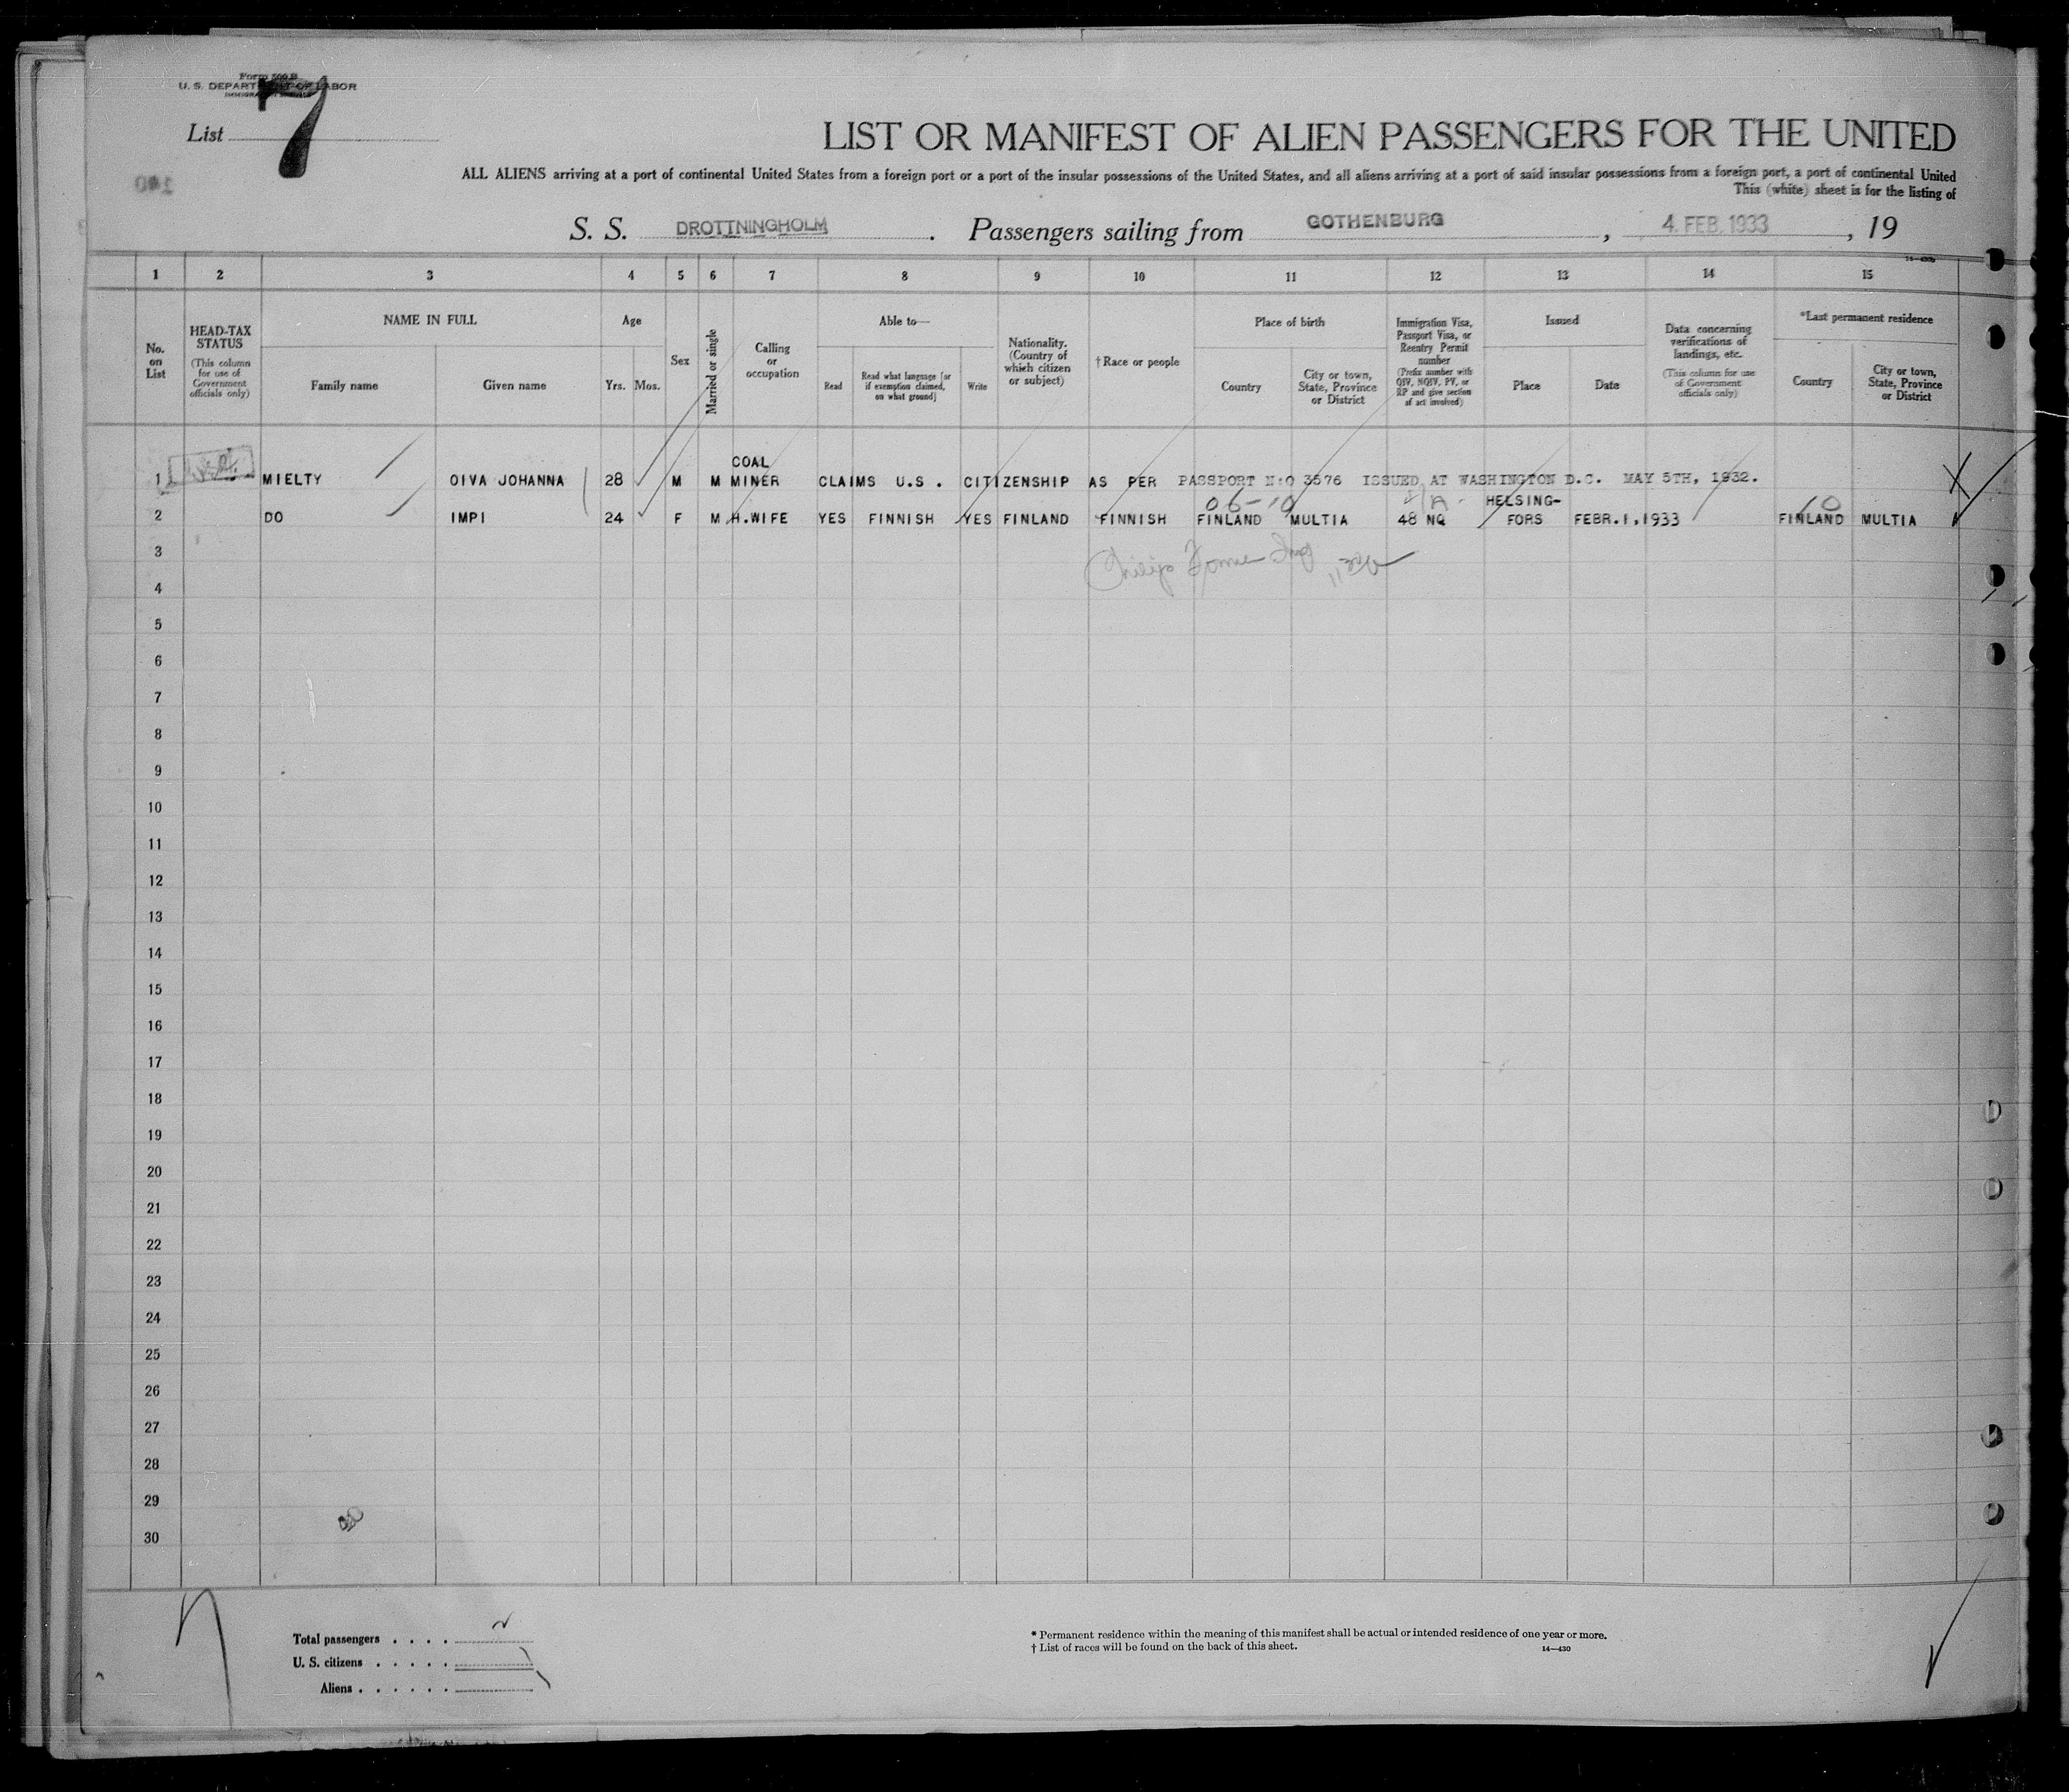 Form 500 B
U. S. DEPARTMENT OF LABOR
IMMIGRATION SERVICE
List 7
LIST OR MANIFEST OF ALIEN PASSENGERS FOR THE UNITED
ALL ALIENS arriving at a port of continental United States from a foreign port or a port of the insular possessions of the United States, and all aliens arriving at a port of said insular possessions from a foreign port, a port of continental United
This (white) sheet is for the listing of
S. S. DROTTNINGHOLM. Passengers sailing from GOTHENBURG, 4. FEB. 1933, 19
14—430b
1 2 3 4 5 6 7 8 9 10 11 12 13 14 15
No. on List
HEAD-TAX STATUS
(This column for use of Government officials only)
NAME IN FULL
Family name Given name
Age
Yrs. Mos.
Sex
Married or single
Calling or occupation
Able to—
Read
Read what language [or if exemption claimed, on what ground]
Write
Nationality. (Country of which citizen or subject)
†Race or people
Place of birth
Country
City or town, State, Province or District
Immigration Visa, Passport Visa, or Reentry Permit number
(Prefix number with QIV, NQIV, PV, or RP and give section of act involved)
Issued
Place Date
Data concerning verifications of landings, etc.
(This column for use of Government officials only)
*Last permanent residence
Country
City or town, State, Province or District
1 MIELTY OIVA JOHANNA 28 M M COAL MINER CLAIMS U.S. CITIZENSHIP AS PER PASSPORT N:O 3576 ISSUED AT WASHINGTON D.C. MAY 5TH, 1932.
06-10
10
2 DO IMPI 24 F M H.WIFE YES FINNISH YES FINLAND FINNISH FINLAND MULTIA 48 NQ HELSING-FORS FEBR.1,1933 FINLAND MULTIA
3
4
5
6
7
8
9
10
11
12
13
14
15
16
17
18
19
20
21
22
23
24
25
26
27
28
29
30
Total passengers . . . . 2
U. S. citizens . . . . . 1
Aliens . . . . . . 1
* Permanent residence within the meaning of this manifest shall be actual or intended residence of one year or more.
† List of races will be found on the back of this sheet.
14—430